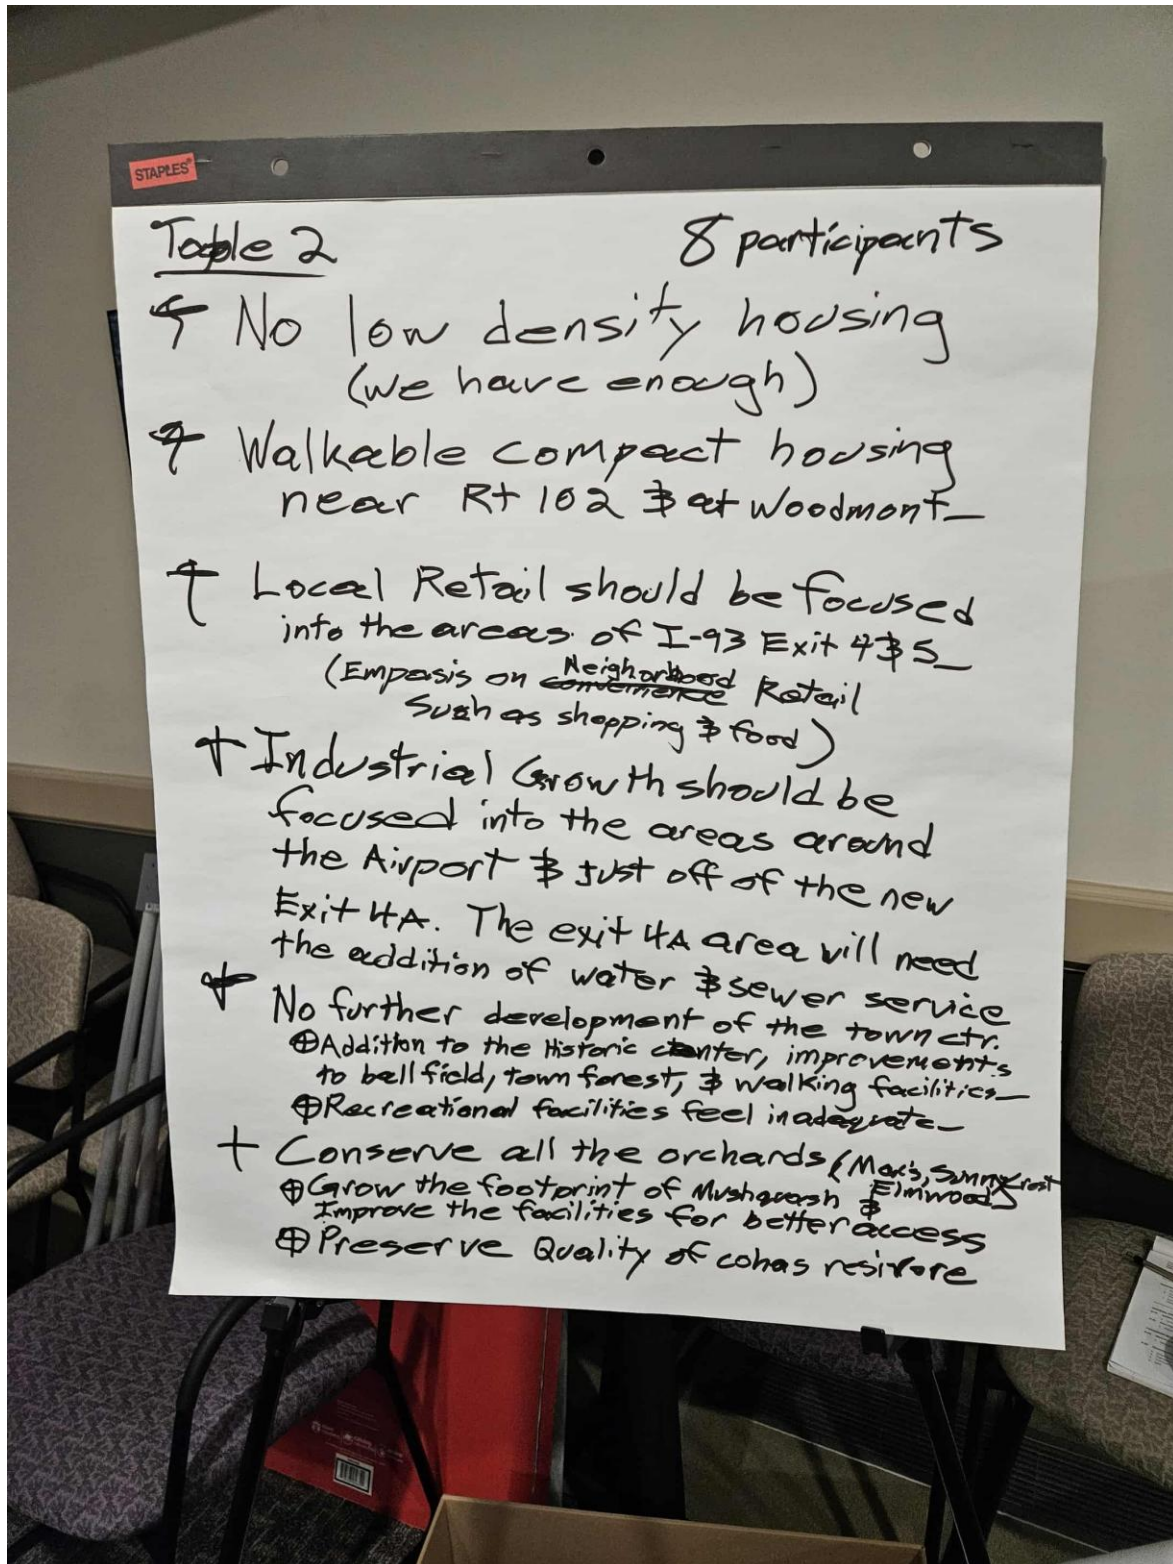 STAPLES
Table 2
8 participants
+ No low density housing
(we have enough)
+ Walkable compact housing
near Rt 102 & at Woodmont
+ Local Retail should be focused
into the areas of I-93 Exit 4 & 5
(Empasis on convenience Neighorhood Retail
Such as shopping & food)
+ Industrial Growth should be
focused into the areas around
the Airport & just off of the new
Exit 4A. The exit 4A area will need
the addition of water & sewer service
+ No further development of the town ctr.
⊕ Addition to the Historic center, improvements
to ball field, town forest, & walking facilities
⊕ Recreational facilities feel inadequate
+ Conserve all the orchards (Mack's, Sunnycrest
Elmwood)
⊕ Grow the footprint of Mushquash &
Improve the facilities for better access
⊕ Preserve Quality of cohas resivore